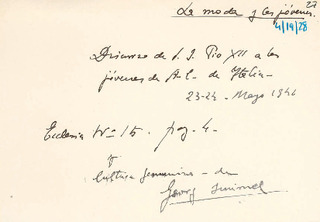 La moda y los jóvenes. 27
4/19/28
Discurso de S. S. Pio XII a los
jóvenes de A.C. de Italia -
23-24 - Mayo 1941
Ecclesia Nº 15. pag. 4 -
y
Cultura femenina - de
Georg Simmel